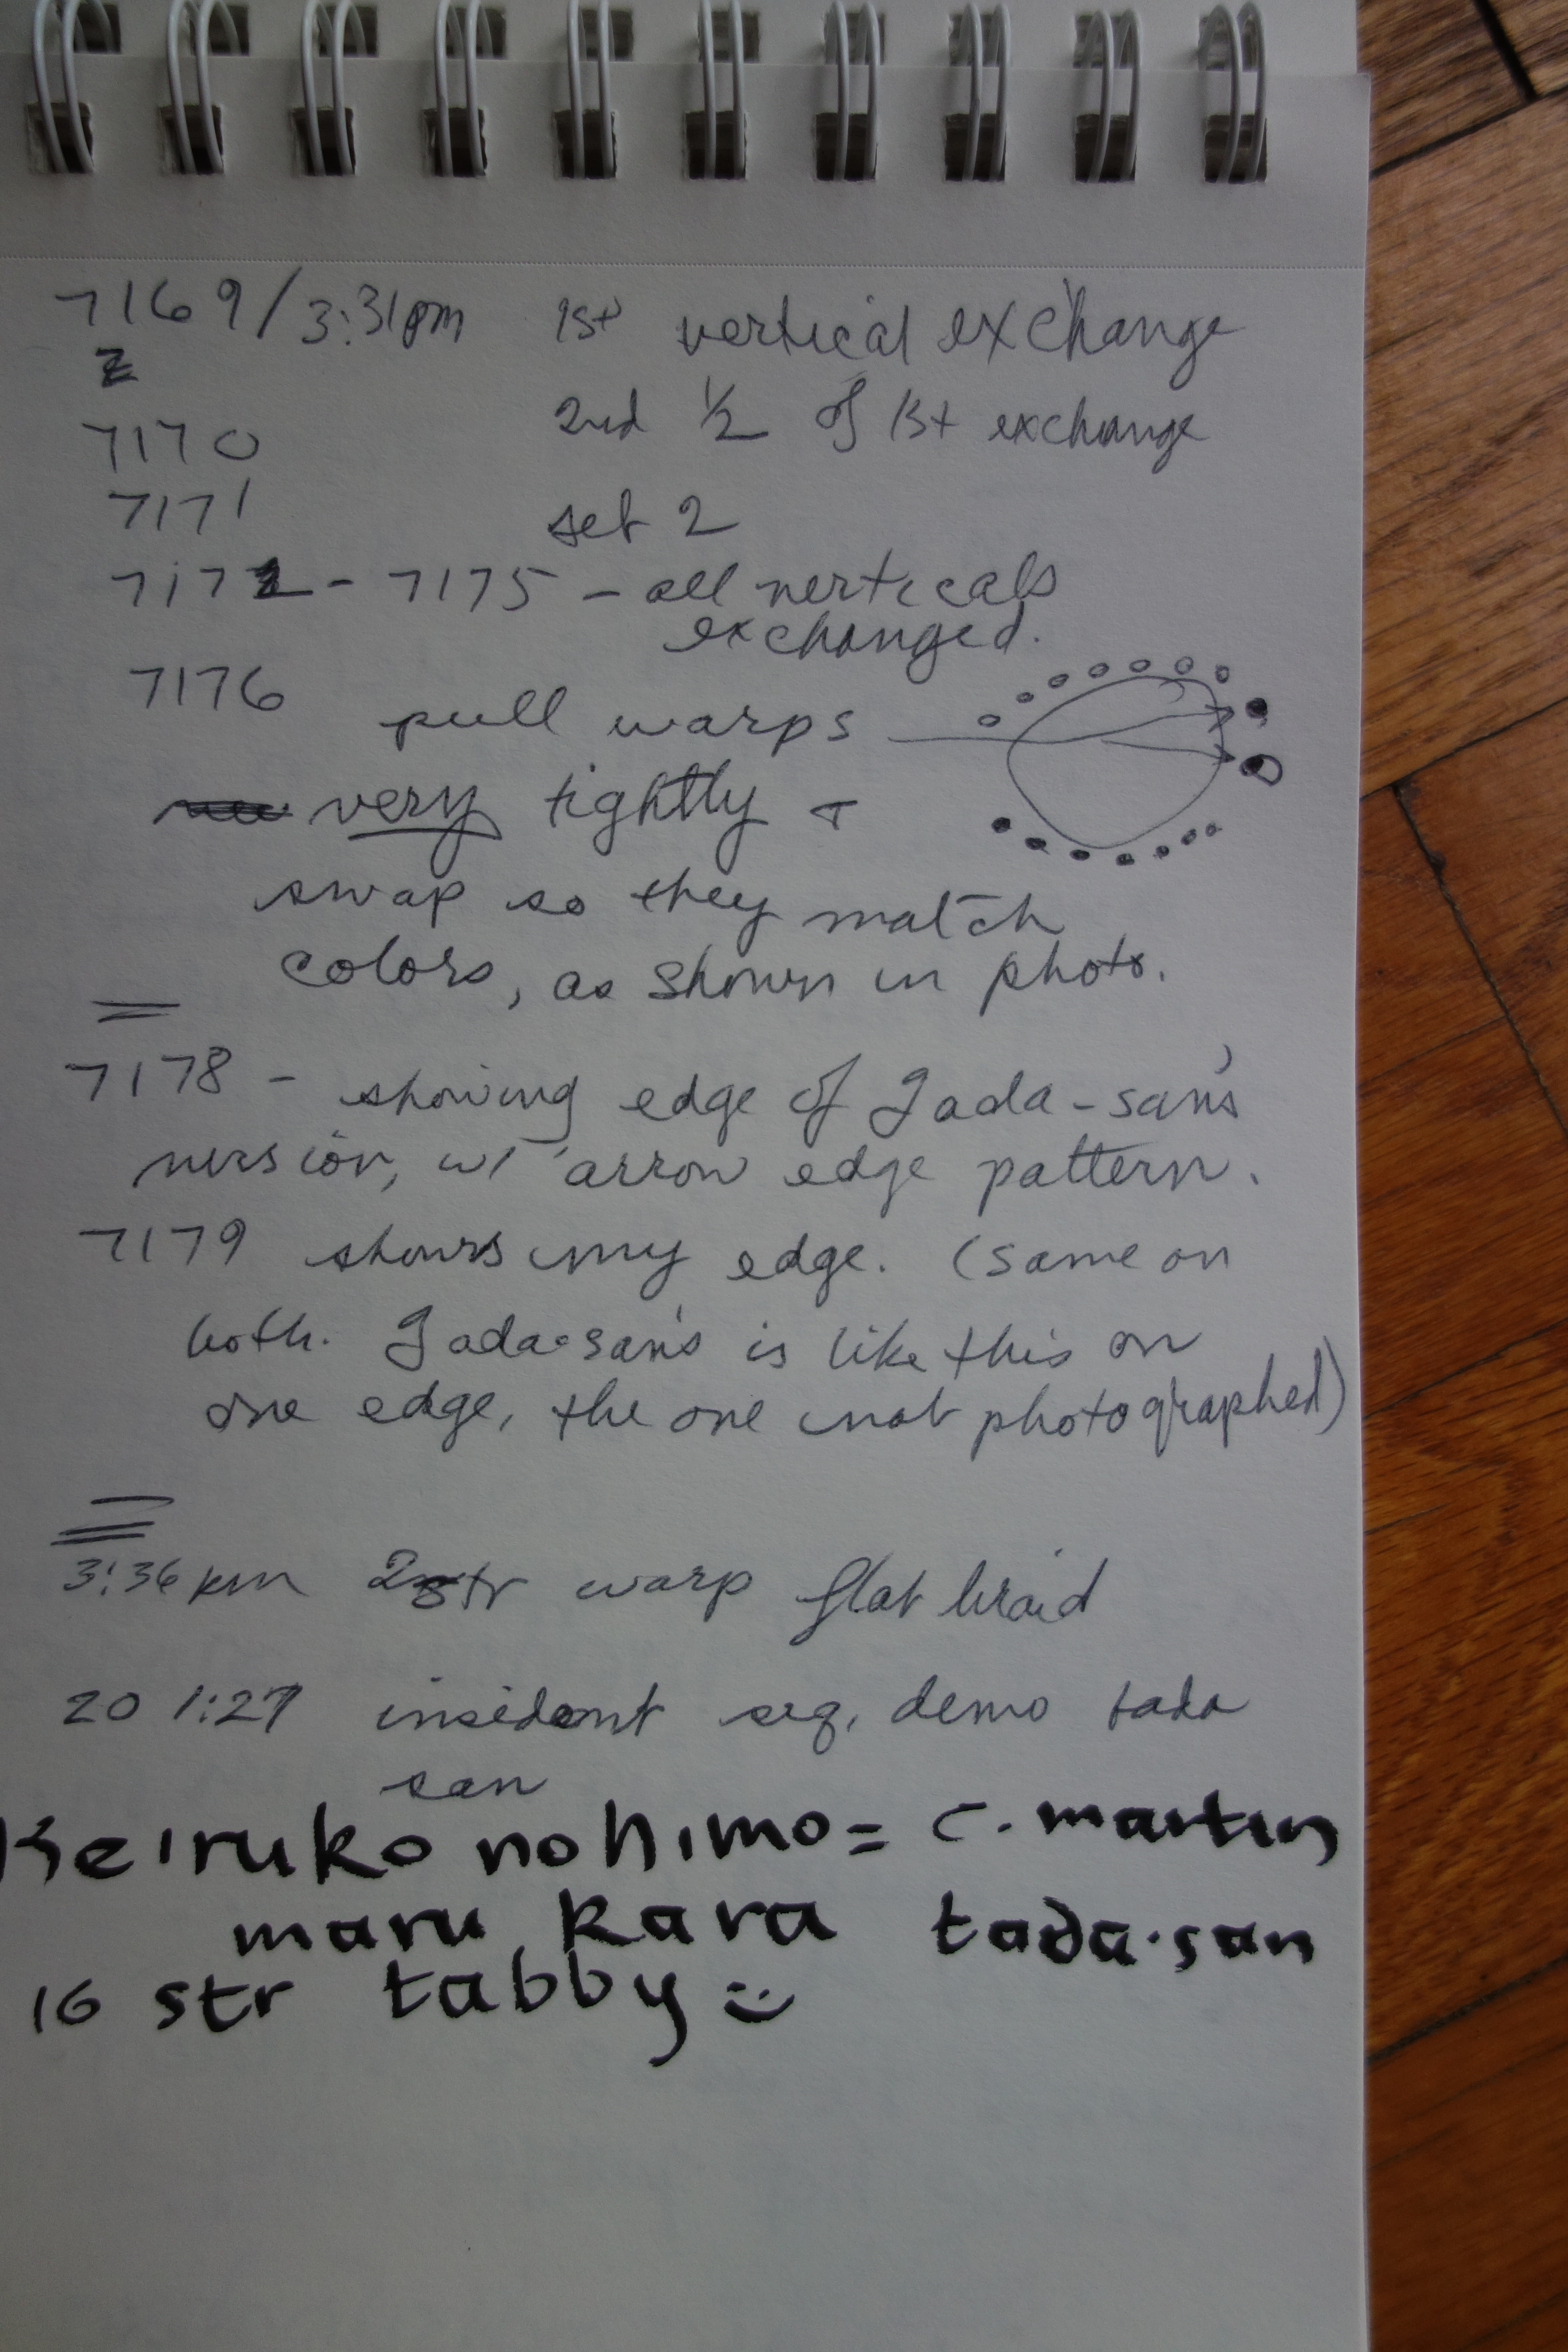 7169/3:31pm 1st vertical exchange
7170 2nd 1/2 of 1st exchange
7171 set 2
7172 - 7175 - all verticals
exchanged.
7176 pull warps
very tightly +
swap so they match
colors, as shown in photo.
7178 - showing edge of Tada-san's
version, w/ arrow edge pattern.
7179 shows my edge. (same on
both. Tada-san's is like this on
one edge, the one not photographed)
3:36 pm warp flat braid
20 1:27 seq. demo tada
san
Keiruko no himo = C. martin
maru kara tada-san
16 str tabby :)